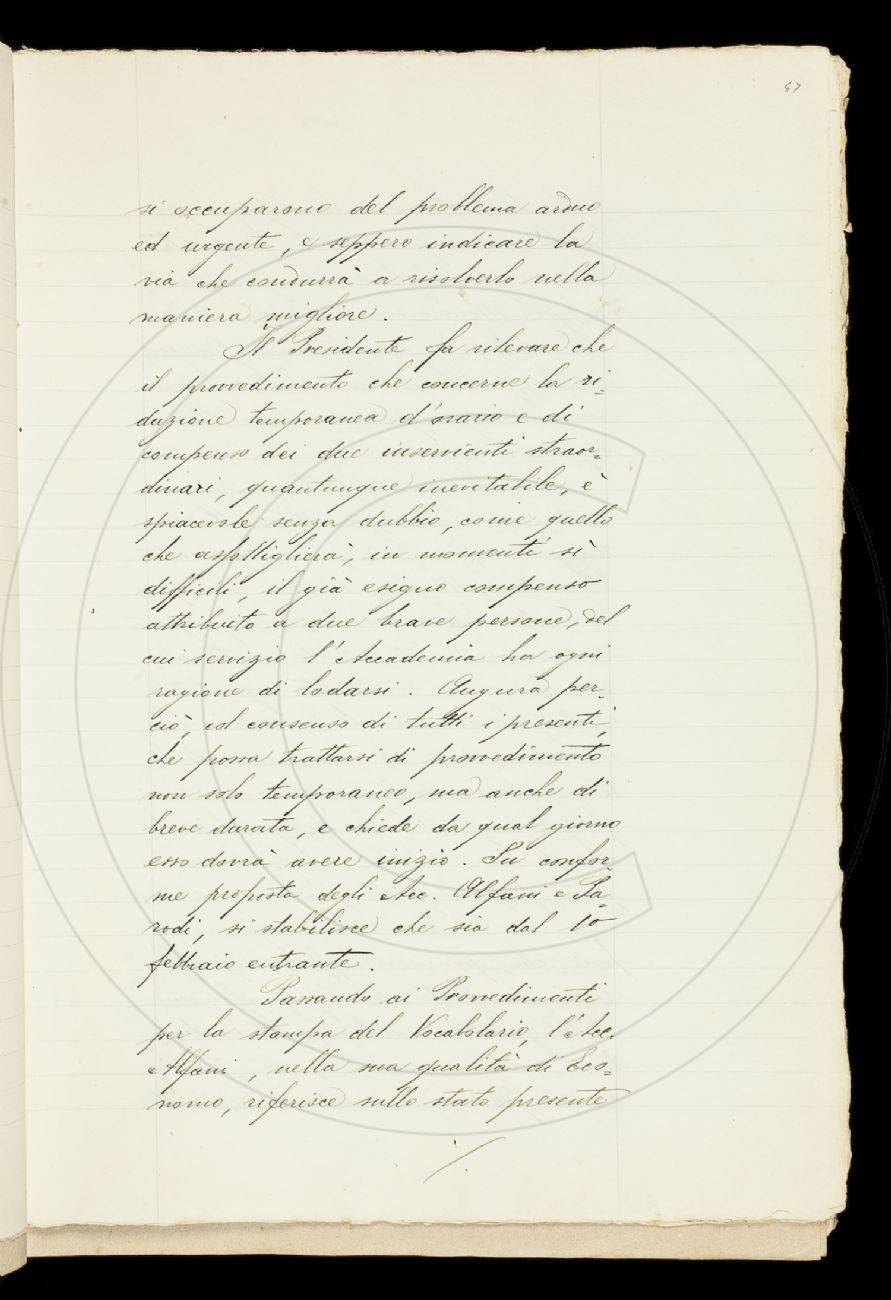 67
si occuparono del problema arduo
ed urgente, e seppero indicare la
via che condurrà a risolverlo nella
maniera migliore.
Il Presidente fa rilevare che
il provvedimento che concerne la ri=
duzione temporanea d'orario e di
compenso dei due inservienti straor=
dinari, quantunque inevitabile, è
spiacevole senza dubbio, come quello
che assottiglierà, in momenti sì
difficili, il già esiguo compenso
attribuito a due brave persone, del
cui servizio l'Accademia ha ogni
ragione di lodarsi. Augura per=
ciò, col consenso di tutti i presenti,
che possa trattarsi di provvedimento
non solo temporaneo, ma anche di
breve durata, e chiede da qual giorno
esso dovrà avere inizio. Su confor=
me proposta degli Acc. Alfani e Pa=
rodi, si stabilisce che sia dal 1º
febbraio entrante.
Passando ai Provvedimenti
per la stampa del Vocabolario, l'Acc.
Alfani, nella sua qualità di Eco=
nomo, riferisce sullo stato presente
./.